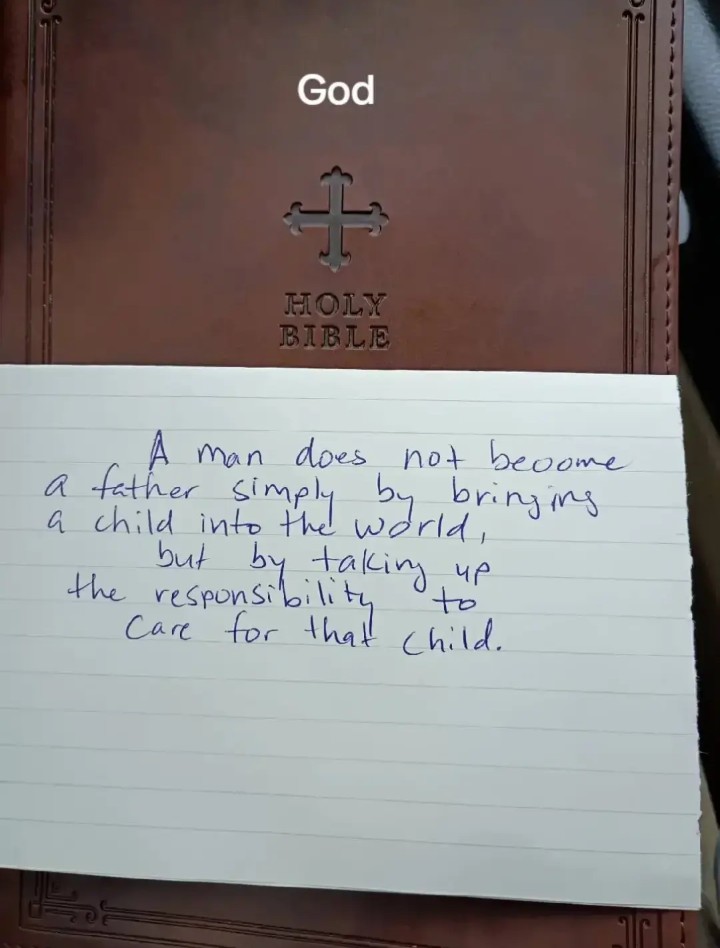 God
HOLY
BIBLE
A man does not become
a father simply by bringing
a child into the world,
but by taking up
the responsibility to
care for that child.